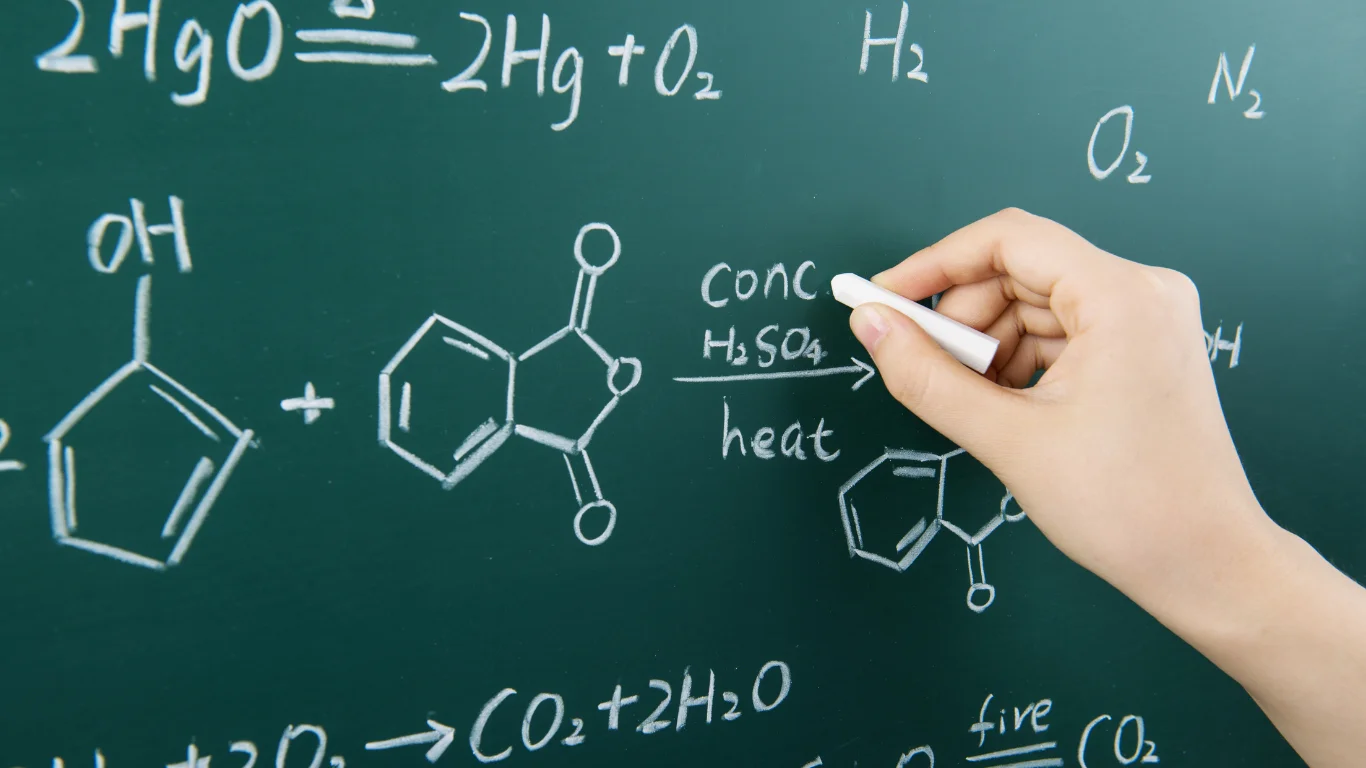 2HgO ≜ 2Hg + O₂
H₂
N₂
O₂
OH
+
O
O
O
conc
H₂SO₄
heat
H
O
CO₂ + 2H₂O
+ 2O₂ →
fire
CO₂